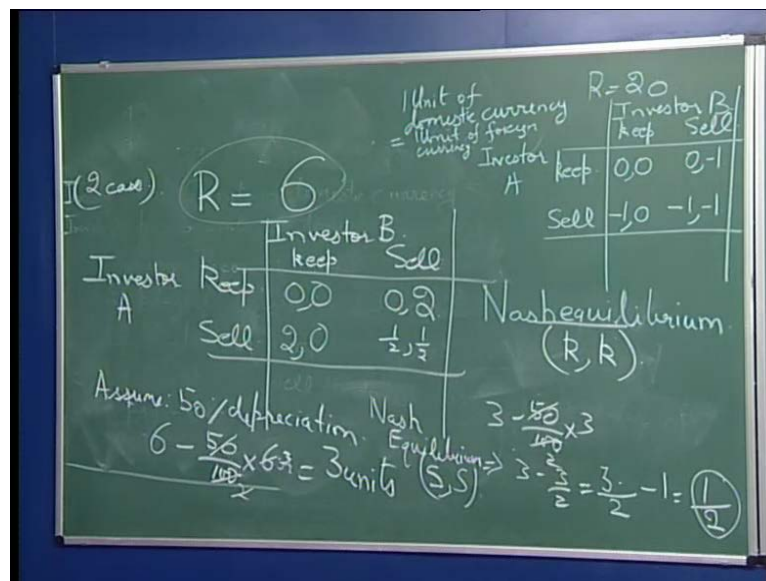 1 Unit of
domestic currency
= 1 Unit of foreign
currency
R = 20
Investor B.
keep Sell
Investor
A
keep 0,0 0,-1
Sell -1,0 -1,-1
(2 case).
R = 6
Investor B.
keep Sell
Investor
A
Keep 0,0 0,2
Sell 2,0 1/2, 1/2
Nash equilibrium.
(k, k).
Assume: 50% depreciation.
6 - 50/100 × 6 3 = 3 units
2
Nash
Equilibrium ⇒
(S, S)
3 - 50/100 × 3
2
3 - 3/2 = 3/2 - 1 = 1/2